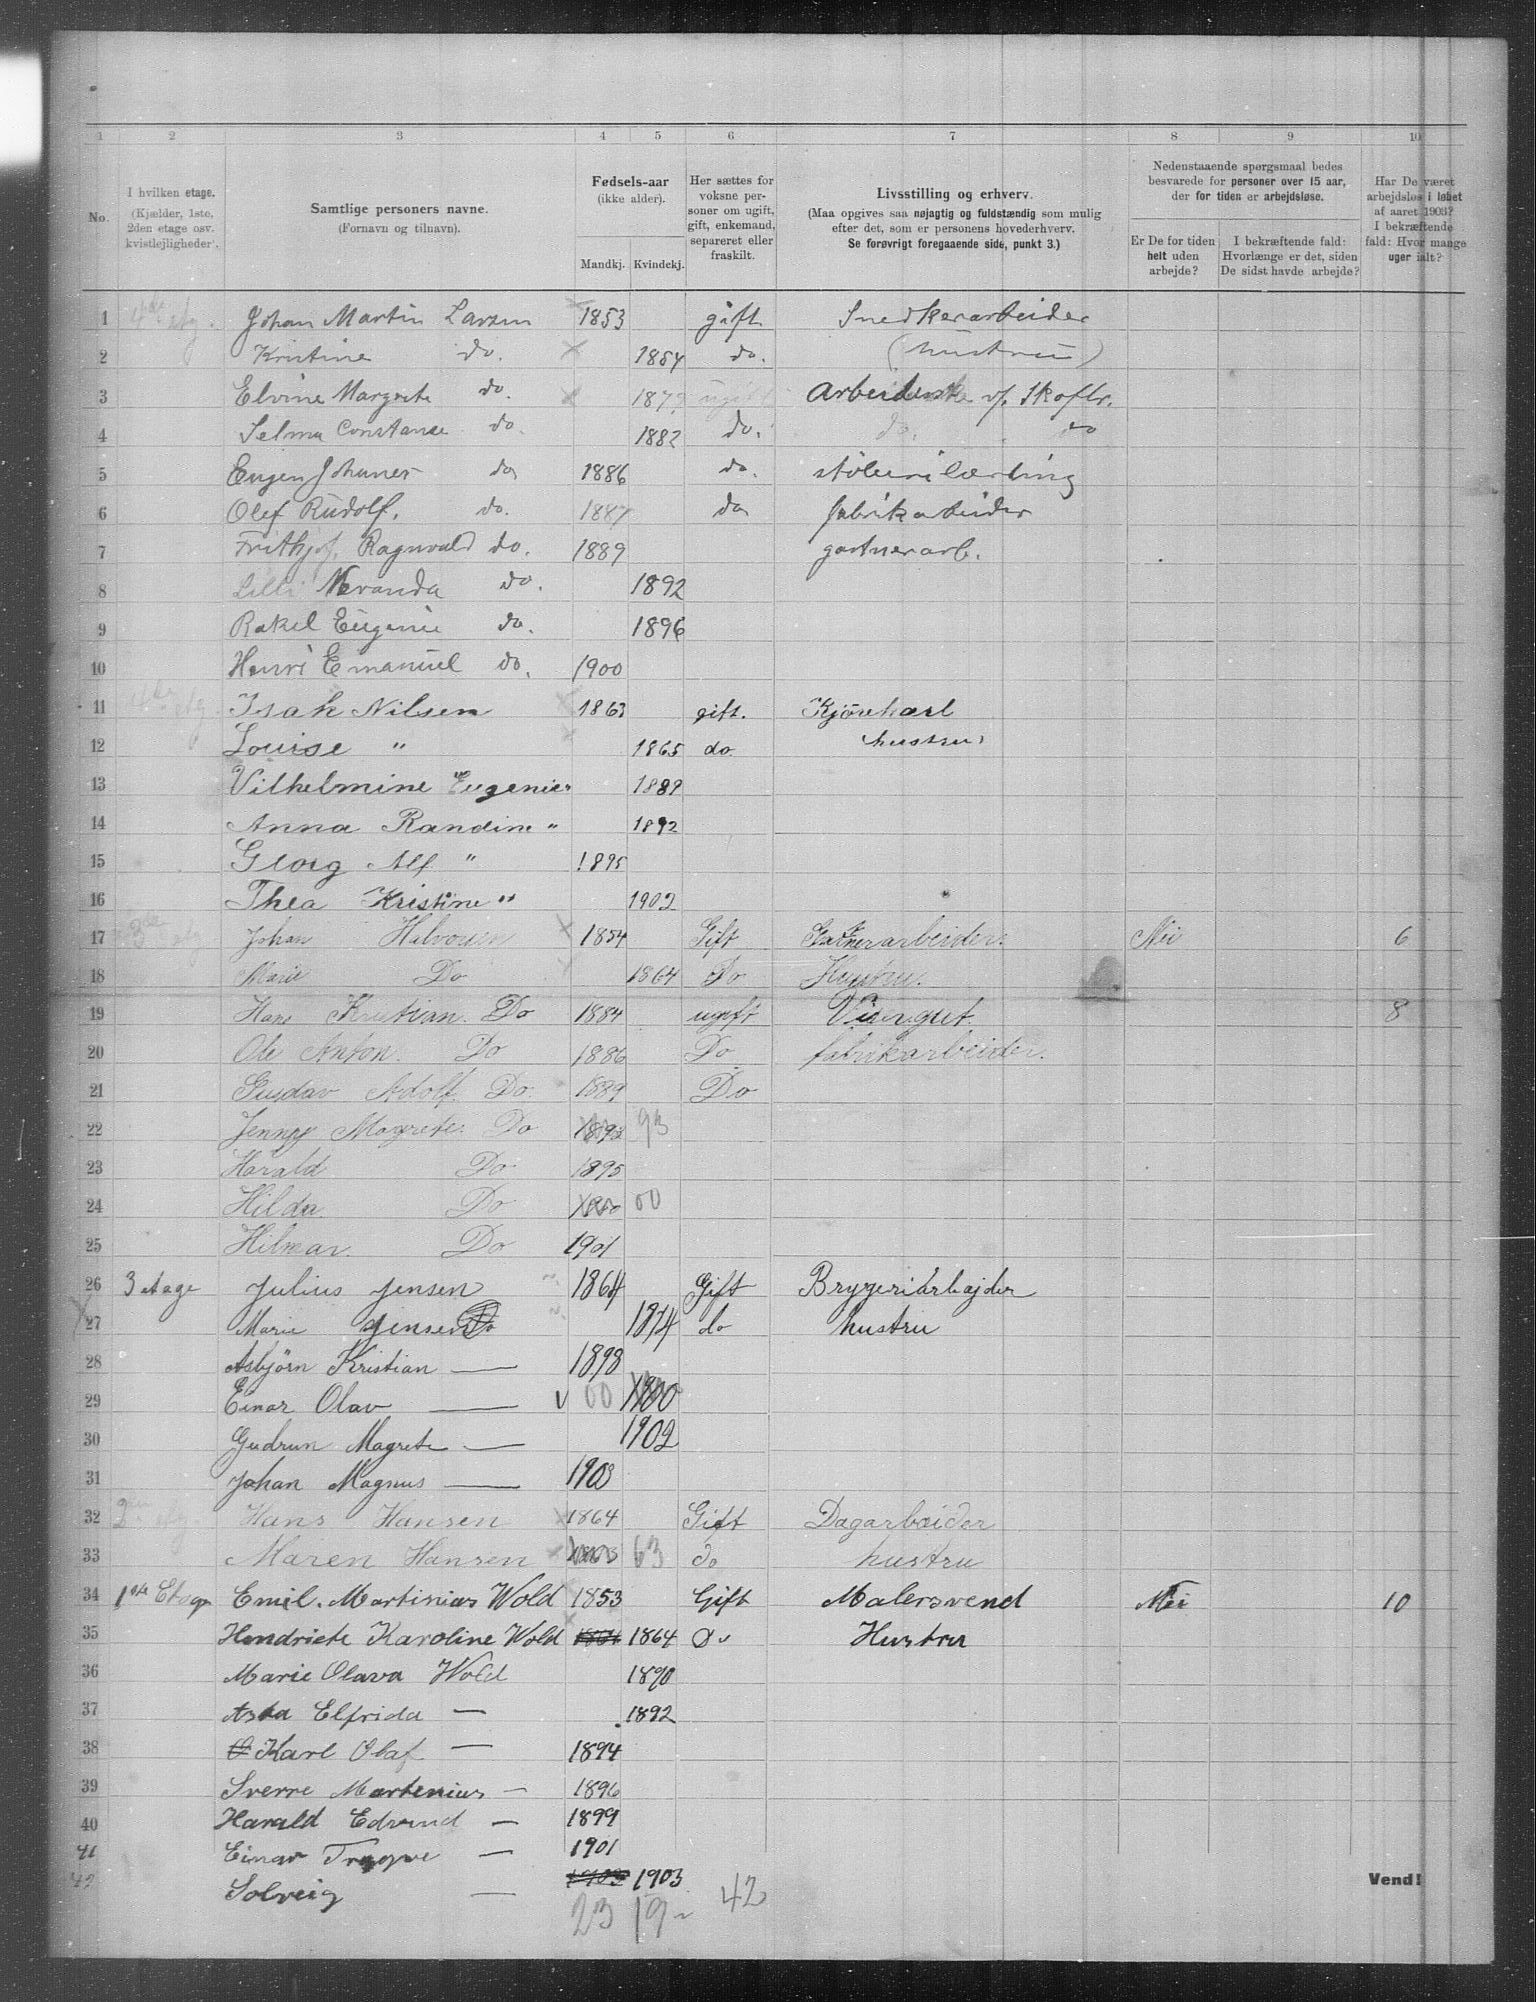 1 2 3 4 5 6 7 8 9 10
No.
I hvilken etage. (Kjælder, 1ste, 2den etage osv. kvistlejligheder).
Samtlige personers navne. (Fornavn og tilnavn).
Fødsels-aar (ikke alder). Mandkj. Kvindekj.
Her sættes for voksne personer om ugift, gift, enkemand, separeret eller fraskilt.
Livsstilling og erhverv. (Maa opgives saa nøjagtig og fuldstændig som mulig efter det, som er personens hovederhverv. Se forøvrigt foregaaende side, punkt 3.)
Nedenstaaende spørgsmaal bedes besvarede for personer over 15 aar, der for tiden er arbejdsløse.
Er De for tiden helt uden arbejde?
I bekræftende fald: Hvorlænge er det, siden De sidst havde arbejde?
Har De været arbejdsløs i løbet af aaret 1903? I bekræftende fald: Hvor mange uger ialt?
1 4de etg. Johan Martin Larsen 1853 gift Snedkerarbeider
2 Kristine do. 1854 do. (hustru)
3 Elvine Margrete do. ugift Arbeiderske v/ Skofbr.
4 Selma Constanse do. 1882 do. do. do
5 Eugen Johanes do 1886 do. støberilærling
6 Olef Rudolf. do. 1887 do fabrikarbeider
7 Frithjof. Ragnvald do. 1889 gartnerarb.
8 Lilli Veranda do. 1892
9 Rakel Eugenie do. 1896
10 Henri Emanuel do. 1900
11 etg. Isak Nilsen 1863 gift. Kjørekarl
12 Louise " 1865 do. hustru
13 Vilhelmine Eugenie " 1889
14 Anna Randine " 1892
15 Georg Alf " 1895
16 Thea Kristine " 1902
17 3die etg Johan Halvorsen 1854 Gift Gartnerarbeider. Nei 6
18 Marie Do 1864 Do Hustru.
19 Hans Kristian. Do 1884 ugift Visergut. 8
20 Ole Anton. Do 1886 Do fabrikarbeider.
21 Gustav Adolf. Do. 1889 Do
22 Jenny Magrete. Do 1893 93
23 Harald Do 1895
24 Hilda Do 00
25 Hilmar. Do 1901
26 3 etage Julius Jensen 1864 Gift Bryggeriarbejder
27 Marie Jensen Do 1874 do hustru
28 Asbjörn Kristian — 1898
29 Einar Olav — v 00 1900
30 Gudrun Magrete — 1902
31 Johan Magnus — 1903
32 2den etg. Hans Hansen 1864 Gift Dagarbeider
33 Maren Hansen 1863 63 do hustru
34 1ste Etage Emil. Martinius Wold 1853 Gift Malersvend Nei 10
35 Hendriete Karoline Wold 1864 1864 Do Hustru
36 Marie Olava Wold 1890
37 Asta Elfrida — 1892
38 Karl Olaf — 1894
39 Sverre Martenius — 1896
40 Harald Edvind — 1899
41 Einar Trygve — 1901
42 Solveig — 1903 1903
Vend!
23 19 42